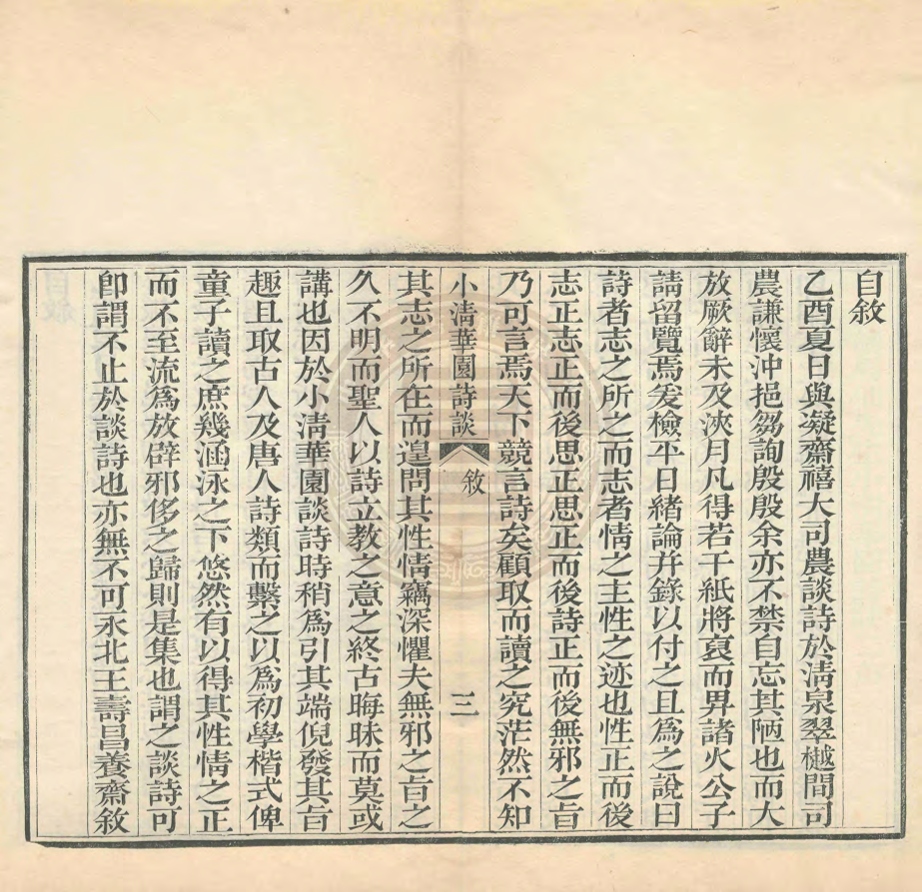 自敘
乙酉夏日與凝齋禧大司農談詩於淸泉翠樾間司
農謙懷沖挹芻詢殷殷余亦不禁自忘其陋也而大
放厥辭未及浹月凡得若干紙將裒而畀諸火公子
請留覽焉爰檢平日緒論幷錄以付之且爲之說曰
詩者志之所之而志者情之主性之迹也性正而後
志正志正而後思正思正而後詩正而後無邪之旨
乃可言焉天下競言詩矣顧取而讀之究茫然不知
小淸華園詩談
敘
三
其志之所在而遑問其性情竊深懼夫無邪之旨之
久不明而聖人以詩立教之意之終古晦昧而莫或
講也因於小淸華園談詩時稍爲引其端倪發其旨
趣且取古人及唐人詩類而繫之以爲初學楷式俾
童子讀之庶幾涵泳之下悠然有以得其性情之正
而不至流爲放辟邪侈之歸則是集也謂之談詩可
卽謂不止於談詩也亦無不可永北王壽昌養齋敘